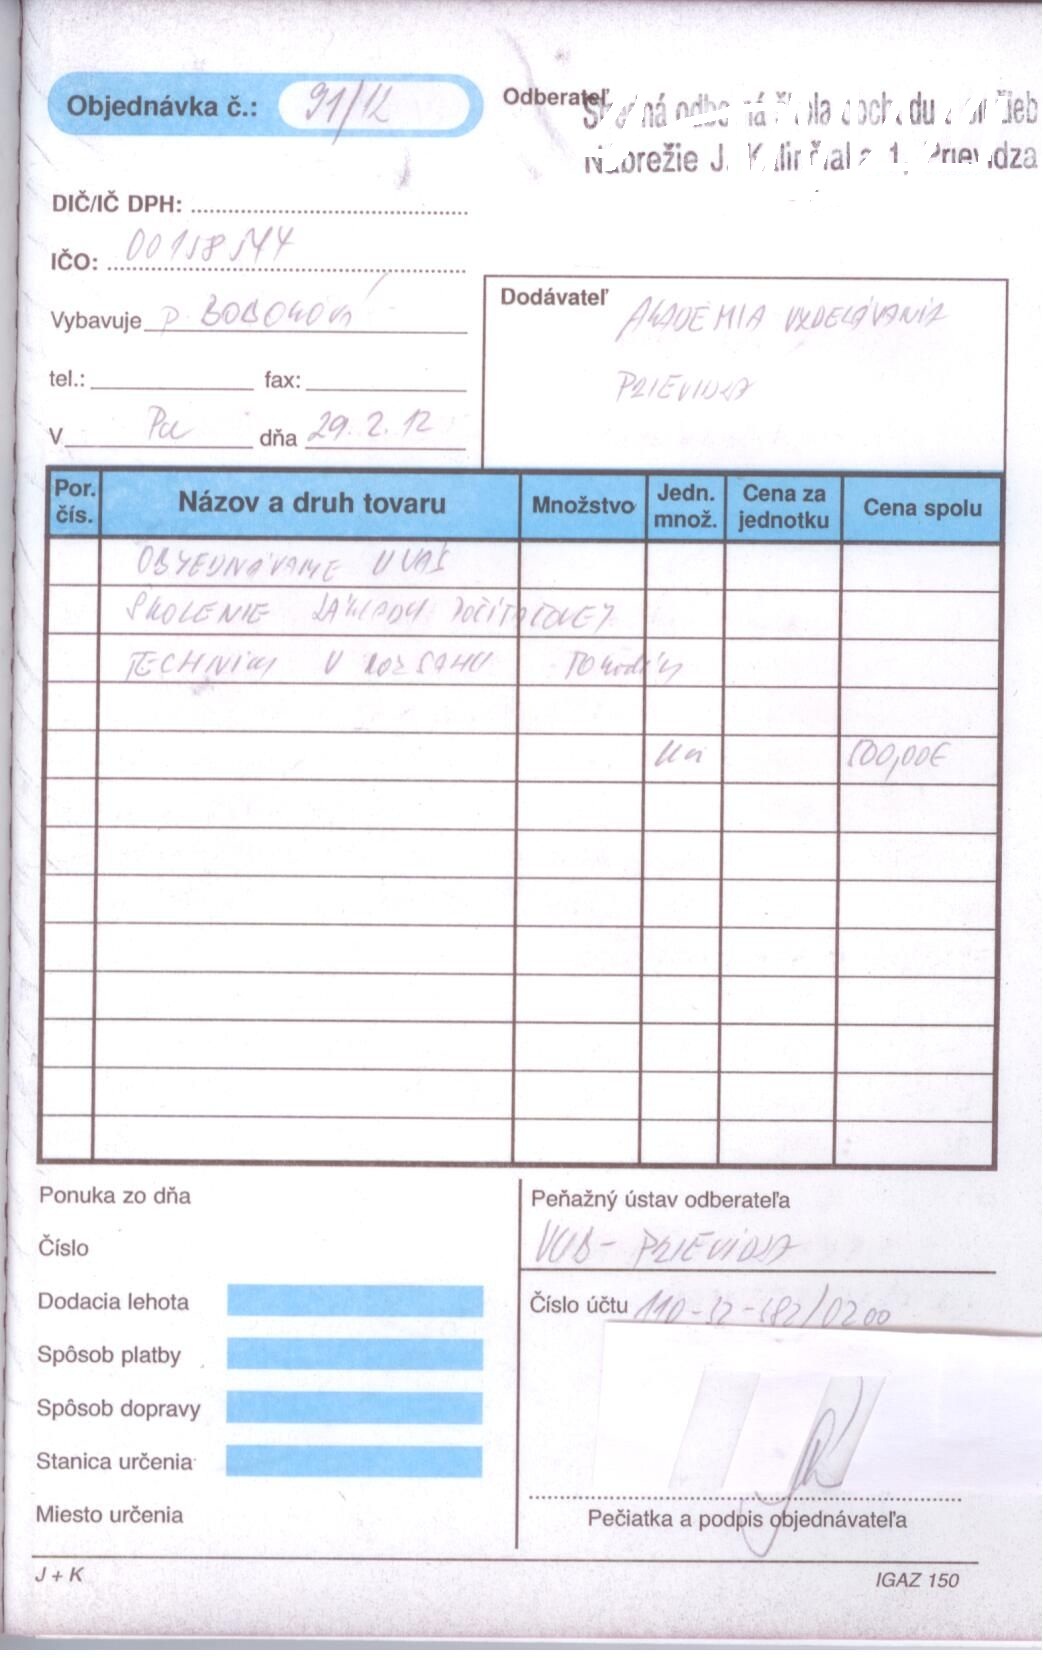 Objednávka č.: 91/12
Odberateľ
odborná škola obchodu
Nábrežie J. Kalinčiaka 1, Prievidza
DIČ/IČ DPH:
IČO: 00158544
Vybavuje p.
tel.: fax:
V Pd dňa 29. 2. 12
Dodávateľ AKADÉMIA VZDELÁVANIA
PRIEVIDZA
Por. čís. Názov a druh tovaru Množstvo Jedn. množ. Cena za jednotku Cena spolu
OBJEDNÁVAME U VÁS
ŠKOLENIE ZÁKLADY POČÍTAČOVEJ
TECHNIKY V ROZSAHU hodín
500,00€
Ponuka zo dňa
Číslo
Dodacia lehota
Spôsob platby
Spôsob dopravy
Stanica určenia
Miesto určenia
Peňažný ústav odberateľa
VÚB - PRIEVIDZA
Číslo účtu
Pečiatka a podpis objednávateľa
J + K
IGAZ 150